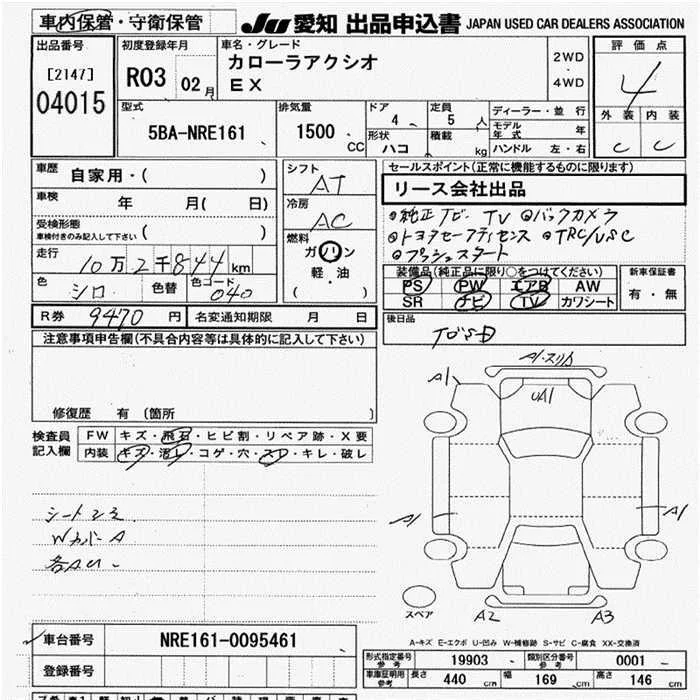 車内保管・守衛保管
JU 愛知 出品申込書 JAPAN USED CAR DEALERS ASSOCIATION
出品番号
[2147]
04015
初度登録年月
R03 02月
車名・グレード
カローラアクシオ
EX
2WD
・
4WD
評価点
4
外装 内装
C C
型式
5BA-NRE161
排気量
1500 CC
ドア
4
定員
5 人
形状
ハコ
積載
kg
ディーラー・並行
モデル年式 年
ハンドル 左・右
車歴
自家用・( )
車検 年 月( 日)
受検形態
車検付きのみ記入して下さい ( )
走行
10万2千844km
色
シロ
色替
色コード
040
シフト
AT
冷房
AC
燃料
ガソリン
軽・油
( )
セールスポイント(正常に機能するものに限ります)
リース会社出品
純正ナビ TV バックカメラ
トヨタセーフティセンス TRC/VSC
プッシュスタート
装備品(純正品に限り○をつけてください)
PS PW エアB AW
SR ナビ TV カワシート
新車保証書
有・無
R券 9470 円
名変通知期限 月 日
後日品
注意事項申告欄(不具合内容等は具体的に記入して下さい)
修復歴 有 (箇所 )
検査員
記入欄
FW キズ・飛石・ヒビ割・リペア跡・X要
内装 キズ・汚レ・コゲ・穴・スレ・キレ・破レ
Wカバー A
各AU
A1・スリキ
A1
UA1
A1
A1
スペア
A2
A3
車台番号
NRE161-0095461
登録番号
A-キズ E-エクボ U-凹み W-補修跡 S-サビ C-腐食 XX-交換済
形式指定番号
参考
19903
類別区分番号
参考
0001
車庫証明用
参考
長さ 440 cm
幅 169 cm
高さ 146 cm